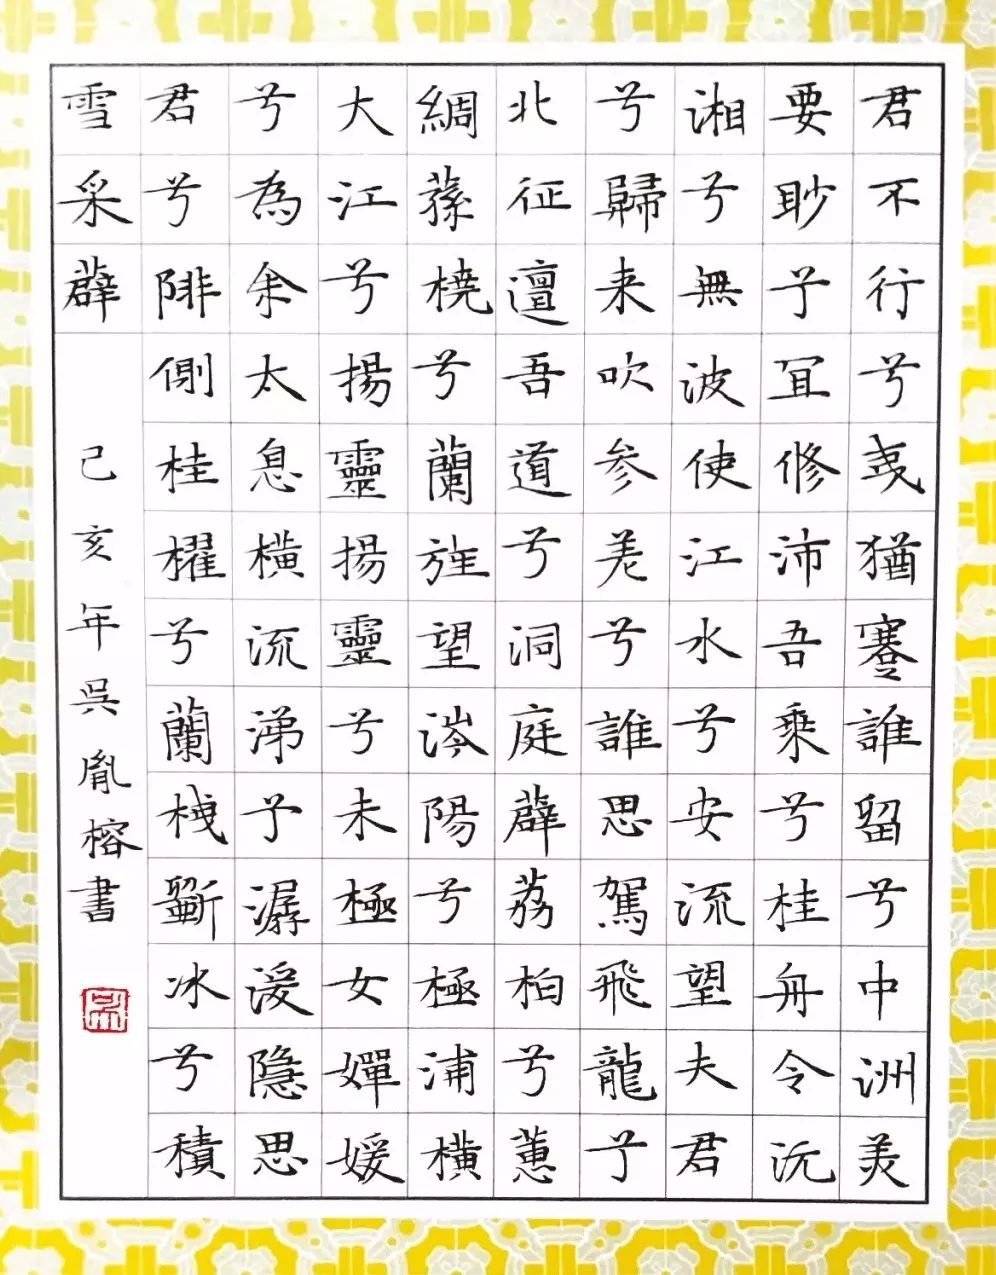 君不行兮夷猶蹇誰留兮中洲美
要眇予冝修沛吾乘兮桂舟令沅
湘兮無波使江水兮安流望夫君
兮歸来吹参差兮誰思駕飛龍兮
北征邅吾道兮洞庭薜荔柏兮蕙
綢蓀橈兮蘭旌望涔陽兮極浦橫
大江兮揚靈揚靈兮未極女嬋媛
兮為余太息橫流涕予潺湲隱思
君兮陫側桂櫂兮蘭枻斲冰兮積
雪采薜
己亥年吳胤榕書